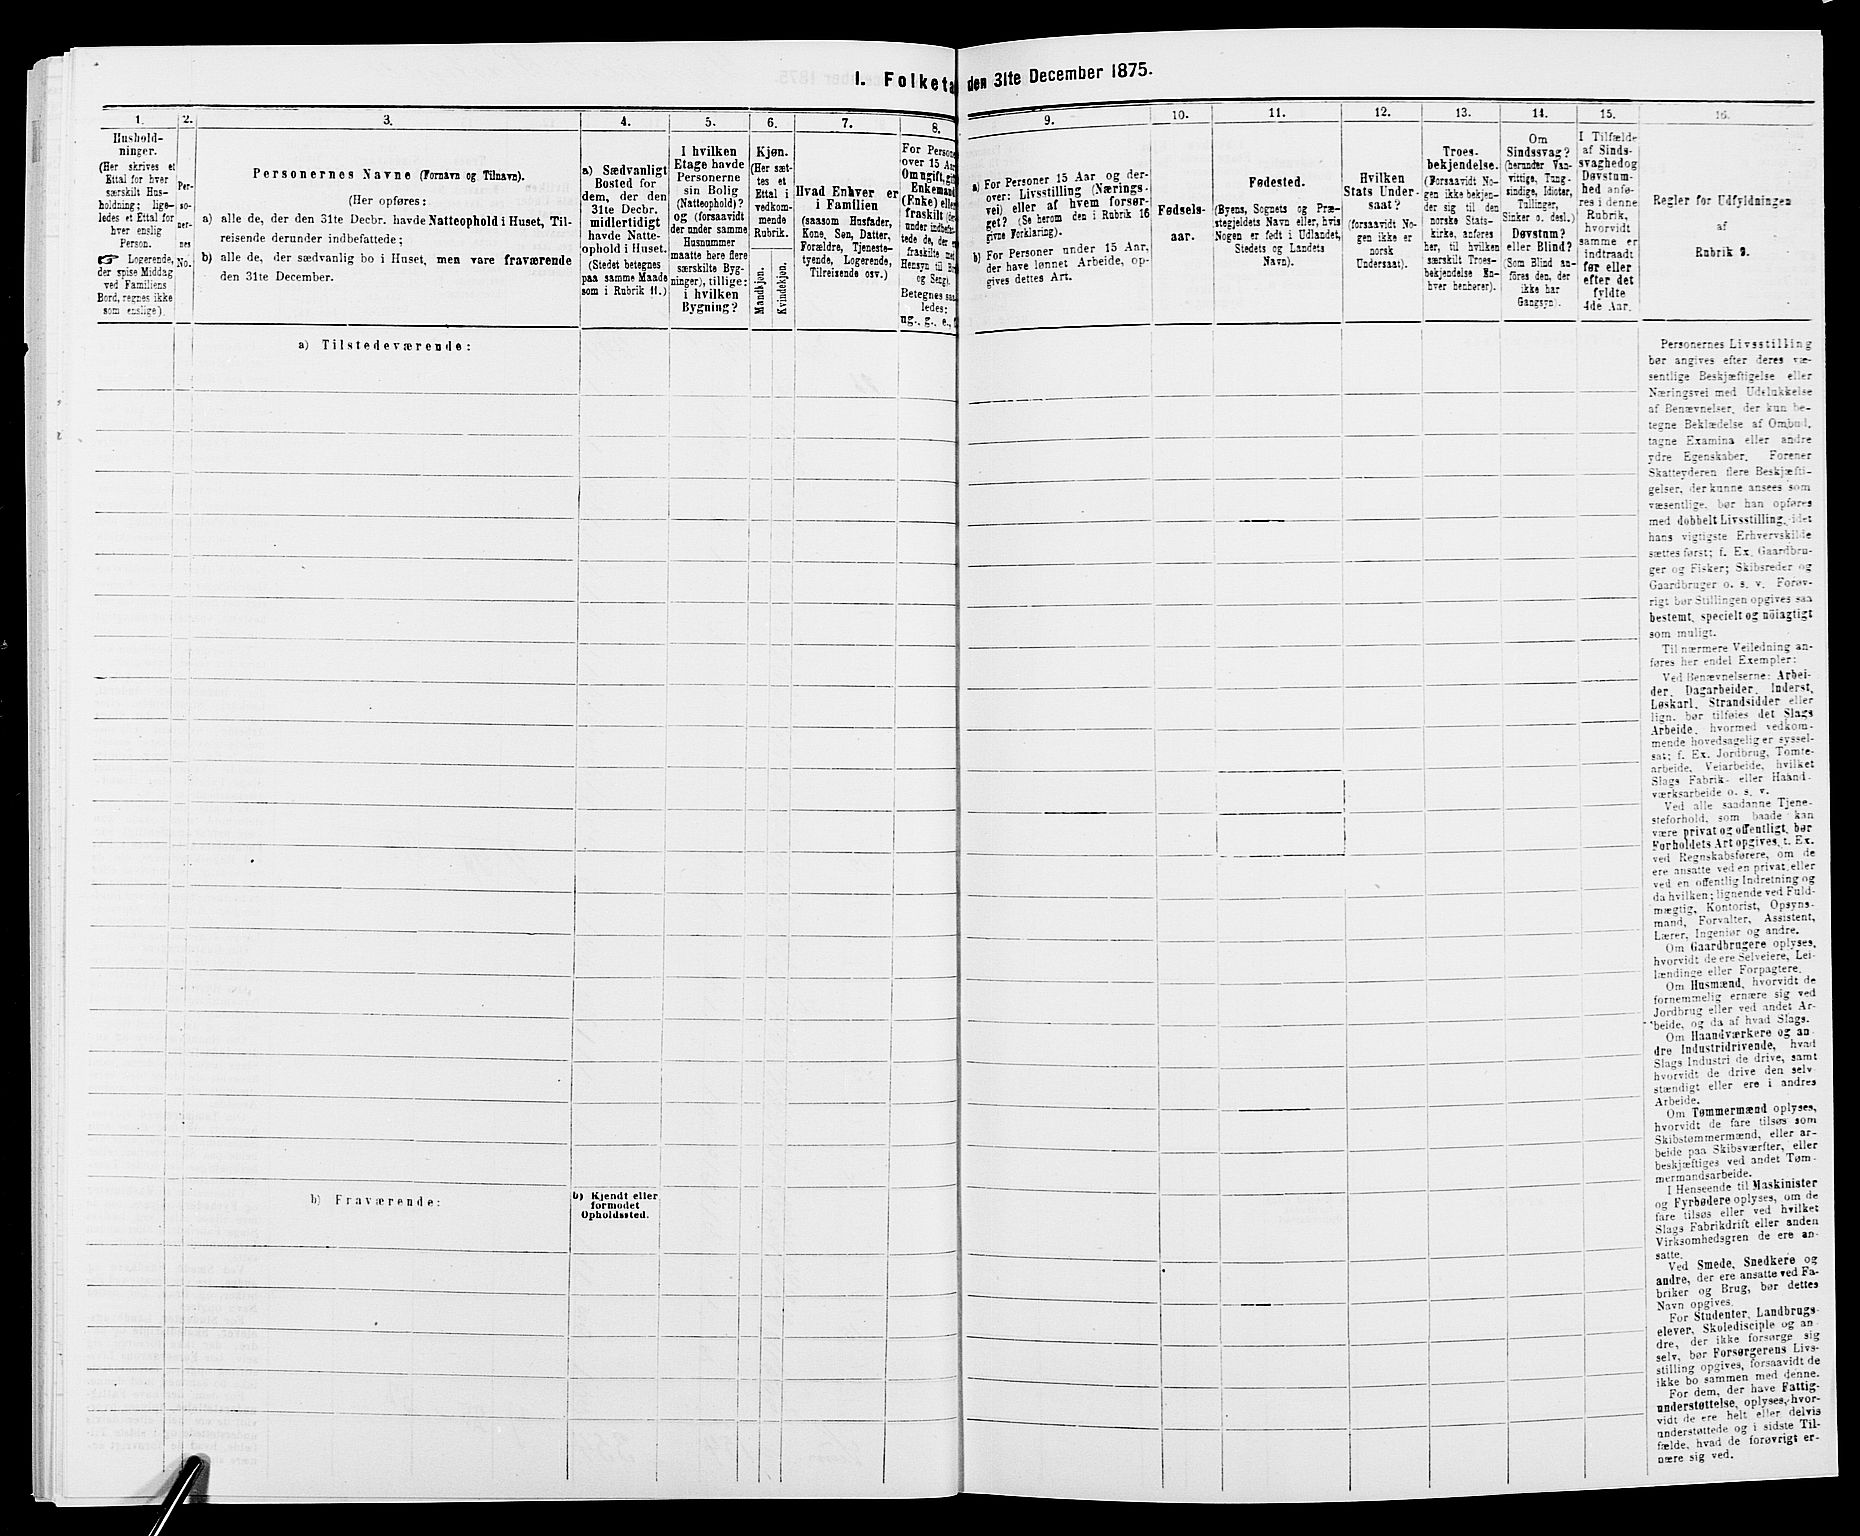 I. Folketa den 31te December 1875.
1.
Hushold-
ninger.
(Her skrives et
Ettal for hver
særskilt Hus-
holdning; lige-
ledes et Ettal for
hver enslig
Person.
☞ Logerende,
der spise Middag
ved Familiens
Bord, regnes ikke
som enslige).
2.
Per-
so-
ner-
nes
No.
3.
Personernes Navne (Fornavn og Tilnavn).
(Her opføres:
a) alle de, der den 31te Decbr. havde Natteophold i Huset, Til-
reisende derunder indbefattede;
b) alle de, der sædvanlig bo i Huset, men vare fraværende
den 31te December.
4.
a) Sædvanligt
Bosted for
dem, der den
31te Decbr.
midlertidigt
havde Natte-
ophold i Huset.
(Stedet betegnes
paa samme Maade
som i Rubrik 11.)
5.
I hvilken
Etage havde
Personerne
sin Bolig
(Natteophold)?
og (forsaavidt
der under samme
Husnummer
maatte høre flere
særskilte Byg-
ninger), tillige:
i hvilken
Bygning?
6.
Kjøn.
(Her sæt-
tes et
Ettal i
vedkom-
mende
Rubrik.
Mandkjøn.
Kvindekjøn.
7.
Hvad Enhver er
i Familien
(saasom Husfader,
Kone, Søn, Datter,
Forældre, Tjeneste-
tyende, Logerende,
Tilreisende osv.)
8.
For Persone
over 15 Aar
Om ugift, gift
Enkemand
(Enke) elle
fraskilt (der
under indbefat
tede de, der e
fraskilte med
Hensyn til Bo
og Seng).
Betegnes saa
ledes:
ug., g., e., f
9.
a) For Personer 15 Aar og der-
over: Livsstilling (Nærings-
vei) eller af hvem forsør-
get? (Se herom den i Rubrik 16
givne Forklaring).
b) For Personer under 15 Aar,
der have lønnet Arbeide, op-
gives dettes Art.
10.
Fødsels-
aar.
11.
Fødested.
(Byens, Sognets og Præ-
stegjeldets Navn eller, hvis
Nogen er født i Udlandet,
Stedets og Landets
Navn).
12.
Hvilken
Stats Under-
saat?
(forsaavidt No-
gen ikke er
norsk
Undersaat).
13.
Troes-
bekjendelse.
(Forsaavidt No-
gen ikke bekjen-
der sig til den
norske Stats-
kirke, anføres
her, til hvilken
særskilt Troes-
bekjendelse En-
hver henhører).
14.
Om
Sindssvag?
(herunder Van-
vittige, Tung-
sindige, Idioter,
Tullinger,
Sinker o. desl.)
Døvstum?
eller Blind?
(Som Blind an-
føres den, der
ikke har
Gangsyn).
15.
I Tilfælde
af Sinds-
svaghed og
Døvstum-
hed anfø-
res i denne
Rubrik,
hvorvidt
samme er
indtraadt
før eller
efter det
fyldte
4de Aar.
16.
Regler for Udfyldningen
af
Rubrik 9.
a) Tilstedeværende:
Personernes Livsstilling
bør angives efter deres væ-
sentlige Beskjæftigelse eller
Næringsvei med Udelukkelse
af Benævnelser, der kun be-
tegne Beklædelse af Ombud,
tagne Examina eller andre
ydre Egenskaber. Forener
Skatteyderen flere Beskjæfti-
gelser, der kunne ansees som
væsentlige, bør han opføres
med dobbelt Livsstilling, idet
hans vigtigste Erhvervskilde
sættes først; f. Ex. Gaardbru-
ger og Fisker; Skibsreder og
Gaardbruger o. s. v. Forøv-
rigt bør Stillingen opgives saa
bestemt, specielt og nöiagtigt
som muligt.
Til nærmere Veiledning an-
føres her endel Exempler:
Ved Benævnelserne: Arbei-
der, Dagarbeider, Inderst,
Løskarl, Strandsidder eller
lign. bør tilføies det Slags
Arbeide, hvormed vedkom-
mende hovedsagelig er syssel-
sat; f. Ex. Jordbrug, Tomte-
arbeide, Veiarbeide, hvilket
Slags Fabrik- eller Haand-
værksarbeide o. s. v.
Ved alle saadanne Tjene-
steforhold, som baade kan
være privat og offentligt, bør
Forholdets Art opgives, t. Ex.
ved Regnskabsførere, om de
ere ansatte ved en privat eller
ved en offentlig Indretning og
da hvilken; lignende ved Fuld-
mægtig, Kontorist, Opsyns-
mand, Forvalter, Assistent,
Lærer, Ingeniør og andre.
Om Gaardbrugere oplyses,
hvorvidt de ere Selveiere, Lei-
lændinge eller Forpagtere.
Om Husmænd, hvorvidt de
fornemmelig ernære sig ved
Jordbrug eller ved andet Ar-
beide, og da af hvad Slags.
Om Haandværkere og an-
dre Industridrivende, hvad
Slags Industri de drive, samt
hvorvidt de drive den selv-
stændigt eller ere i andres
Arbeide.
Om Tømmermænd oplyses,
hvorvidt de fare tilsøs som
Skibstømmermænd, eller ar-
beide paa Skibsværfter, eller
beskjæftiges ved andet Tøm-
mermandsarbeide.
I Henseende til Maskinister
og Fyrbødere oplyses, om de
fare tilsøs eller ved hvilket
Slags Fabrikdrift eller anden
Virksomhedsgren de ere an-
satte.
Ved Smede, Snedkere og
andre, der ere ansatte ved Fa-
briker og Brug, bør dettes
Navn opgives.
For Studenter, Landbrugs-
elever, Skoledisciple og an-
dre, der ikke forsørge sig
selv, bør Forsørgerens Livs-
stilling opgives, forsaavidt de
ikke bo sammen med denne.
For dem, der have Fattig-
understøttelse, oplyses, hvor-
vidt de ere helt eller delvis
understøttede og i sidste Til-
fælde, hvad de forøvrigt er-
nære sig ved.
b) Fraværende:
b) Kjendt eller
formodet
Opholdssted.